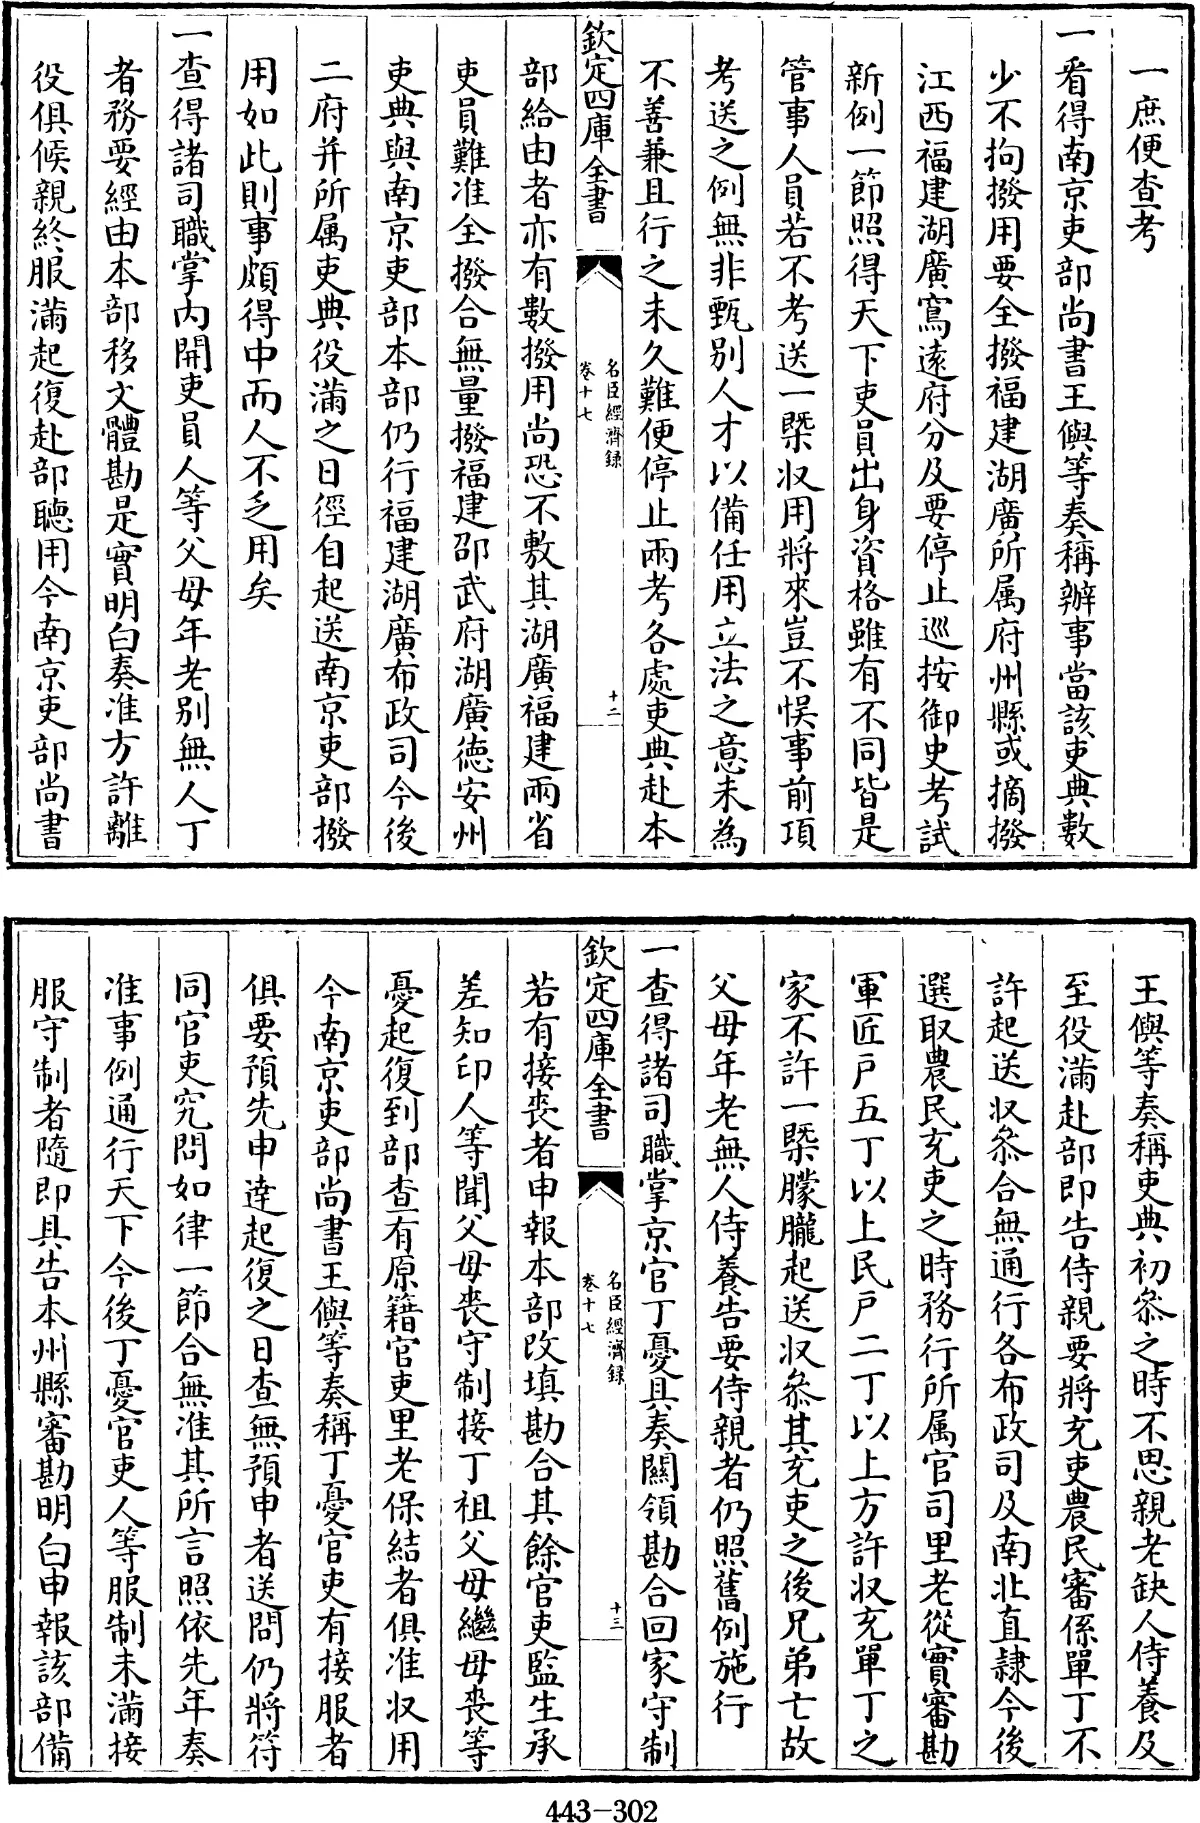 一庶便查考
一看得南京吏部尚書王㒜等奏稱辦事當該吏典數
少不拘撥用要全撥福建湖廣所属府州縣或摘撥
江西福建湖廣寫遠府分及要停止巡按御史考試
新例一節照得天下吏員出身資格雖有不同皆是
管事人員若不考送一槩収用將來豈不悮事前項
考送之例無非甄别人才以備任用立法之意未為
不善兼且行之未久難便停止兩考各處吏典赴本
欽定四庫全書
名臣經濟録
卷十七
十二
部給由者亦有數撥用尚恐不敷其湖廣福建兩省
吏員難准全撥合無量撥福建邵武府湖廣徳安州
吏典與南京吏部本部仍行福建湖廣布政司今後
二府并所属吏典役滿之日徑自起送南京吏部撥
用如此則事頗得中而人不乏用矣
一查得諸司職掌内開吏員人等父母年老别無人丁
者務要經由本部移文體勘是實明白奏准方許離
役俱候親終服滿起復赴部聽用今南京吏部尚書
王㒜等奏稱吏典初叅之時不思親老缺人侍養及
至役滿赴部即告侍親要將充吏農民審係單丁不
許起送収叅合無通行各布政司及南北直隷今後
選取農民充吏之時務行所属官司里老從實審勘
軍匠戸五丁以上民戸二丁以上方許収充單丁之
家不許一槩朦朧起送収叅其充吏之後兄弟亡故
父母年老無人侍養告要侍親者仍照舊例施行
一查得諸司職掌京官丁憂具奏關領勘合回家守制
欽定四庫全書
名臣經濟録
卷十七
十三
若有接喪者申報本部改填勘合其餘官吏監生承
差知印人等聞父母喪守制接丁祖父母繼母喪等
憂起復到部查有原籍官吏里老保結者俱准収用
今南京吏部尚書王㒜等奏稱丁憂官吏有接服者
俱要預先申逹起復之日查無預申者送問仍將符
同官吏究問如律一節合無准其所言照依先年奏
准事例通行天下今後丁憂官吏人等服制未滿接
服守制者隨即具告本州縣審勘明白申報該部備
443-302